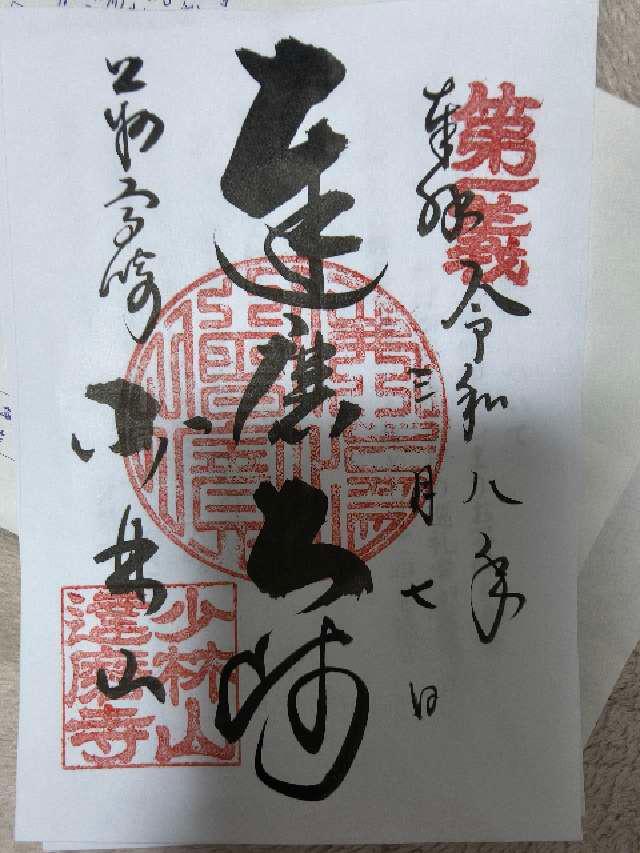 第一義
奉拝
令和八年
三月七日
達磨大師
上州高崎
少林山
少林山
達磨寺